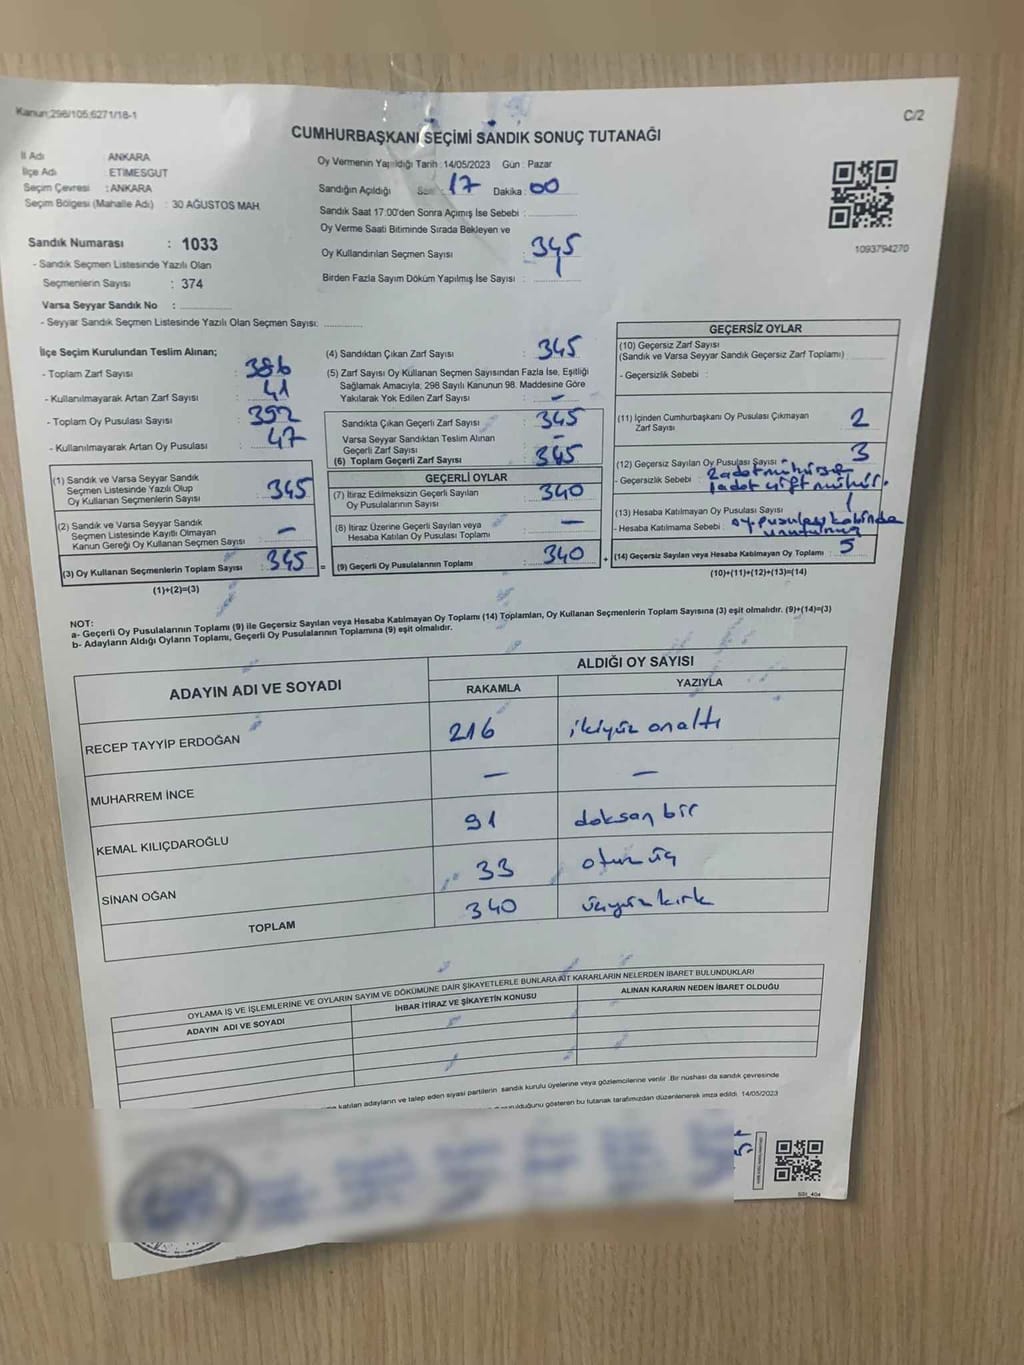 Kanun:298/105;6271/18-1
C/2
CUMHURBAŞKANI SEÇİMİ SANDIK SONUÇ TUTANAĞI
İl Adı ANKARA
İlçe Adı : ETİMESGUT
Seçim Çevresi : ANKARA
Seçim Bölgesi (Mahalle Adı) : 30 AĞUSTOS MAH.
Sandık Numarası : 1033
- Sandık Seçmen Listesinde Yazılı Olan
Seçmenlerin Sayısı : 374
Varsa Seyyar Sandık No :
- Seyyar Sandık Seçmen Listesinde Yazılı Olan Seçmen Sayısı:
Oy Vermenin Yapıldığı Tarih : 14/05/2023 Gün : Pazar
Sandığın Açıldığı Saat : 17 Dakika : 00
Sandık Saat 17:00'den Sonra Açımış İse Sebebi :
Oy Verme Saati Bitiminde Sırada Bekleyen ve
Oy Kullandırılan Seçmen Sayısı : 345
Birden Fazla Sayım Döküm Yapılmış İse Sayısı : 1
1093794270
İlçe Seçim Kurulundan Teslim Alınan;
- Toplam Zarf Sayısı : 386
- Kullanılmayarak Artan Zarf Sayısı : 41
- Toplam Oy Pusulası Sayısı : 392
- Kullanılmayarak Artan Oy Pusulası : 47
(1) Sandık ve Varsa Seyyar Sandık
Seçmen Listesinde Yazılı Olup
Oy Kullanan Seçmenlerin Sayısı : 345
(2) Sandık ve Varsa Seyyar Sandık
Seçmen Listesinde Kayıtlı Olmayan
Kanun Gereği Oy Kullanan Seçmen Sayısı : —
(3) Oy Kullanan Seçmenlerin Toplam Sayısı : 345 =
(1)+(2)=(3)
(4) Sandıktan Çıkan Zarf Sayısı : 345
(5) Zarf Sayısı Oy Kullanan Seçmen Sayısından Fazla İse, Eşitliği
Sağlamak Amacıyla; 298 Sayılı Kanunun 98. Maddesine Göre
Yakılarak Yok Edilen Zarf Sayısı : —
Sandıkta Çıkan Geçerli Zarf Sayısı : 345
Varsa Seyyar Sandıktan Teslim Alınan
Geçerli Zarf Sayısı : —
(6) Toplam Geçerli Zarf Sayısı : 345
GEÇERLİ OYLAR
(7) İtiraz Edilmeksizin Geçerli Sayılan
Oy Pusulalarının Sayısı : 340
(8) İtiraz Üzerine Geçerli Sayılan veya
Hesaba Katılan Oy Pusulası Toplamı : —
(9) Geçerli Oy Pusulalarının Toplamı : 340 +
GEÇERSİZ OYLAR
(10) Geçersiz Zarf Sayısı
(Sandık ve Varsa Seyyar Sandık Geçersiz Zarf Toplamı)
- Geçersizlik Sebebi :
(11) İçinden Cumhurbaşkanı Oy Pusulası Çıkmayan
Zarf Sayısı : 2
(12) Geçersiz Sayılan Oy Pusulası Sayısı : 3
- Geçersizlik Sebebi : 2 adet mühürsüz
1 adet çift mühür.
(13) Hesaba Katılmayan Oy Pusulası Sayısı
- Hesaba Katılmama Sebebi : oy pusulası kabinde
unutulmuş
(14) Geçersiz Sayılan veya Hesaba Katılmayan Oy Toplamı : 5
(10)+(11)+(12)+(13)=(14)
NOT:
a- Geçerli Oy Pusulalarının Toplamı (9) ile Geçersiz Sayılan veya Hesaba Katılmayan Oy Toplamı (14) Toplamları, Oy Kullanan Seçmenlerin Toplam Sayısına (3) eşit olmalıdır. (9)+(14)=(3)
b- Adayların Aldığı Oyların Toplamı, Geçerli Oy Pusulalarının Toplamına (9) eşit olmalıdır.
ADAYIN ADI VE SOYADI ALDIĞI OY SAYISI
RAKAMLA YAZIYLA
RECEP TAYYİP ERDOĞAN 216 ikiyüz onaltı
MUHARREM İNCE — —
KEMAL KILIÇDAROĞLU 91 doksan bir
SİNAN OĞAN 33 otuz üç
TOPLAM 340 üçyüz kırk
OYLAMA İŞ VE İŞLEMLERİNE VE OYLARIN SAYIM VE DÖKÜMÜNE DAİR ŞİKAYETLERLE BUNLARA AİT KARARLARIN NELERDEN İBARET BULUNDUKLARI
ADAYIN ADI VE SOYADI İHBAR İTİRAZ VE ŞİKAYETİN KONUSU ALINAN KARARIN NEDEN İBARET OLDUĞU
katılan adayların ve talep eden siyasi partilerin sandık kurulu üyelerine veya gözlemcilerine verilir. Bir nüshası da sandık çevresinde
olduğunu gösteren bu tutanak tarafımızdan düzenlenerek imza edildi. 14/05/2023